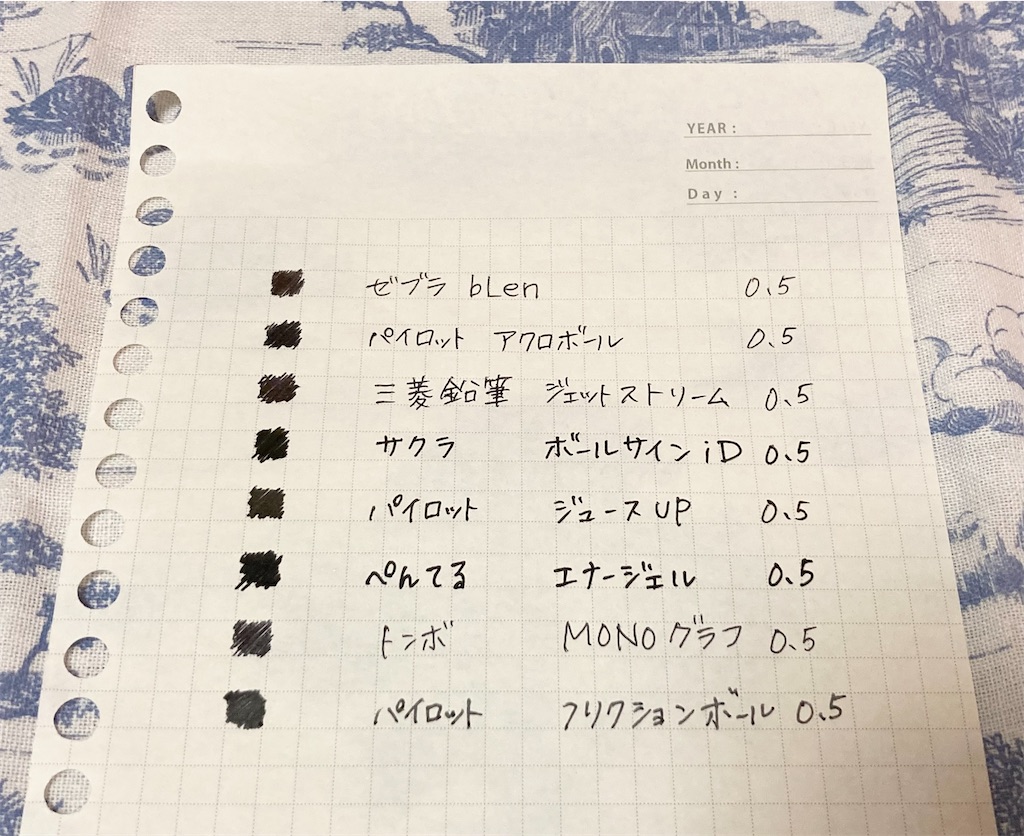 YEAR :
Month :
Day :
ゼブラ bLen 0.5
パイロット アクロボール 0.5
三菱鉛筆 ジェットストリーム 0.5
サクラ ボールサイン iD 0.5
パイロット ジュース UP 0.5
ぺんてる エナージェル 0.5
トンボ MONO グラフ 0.5
パイロット フリクションボール 0.5